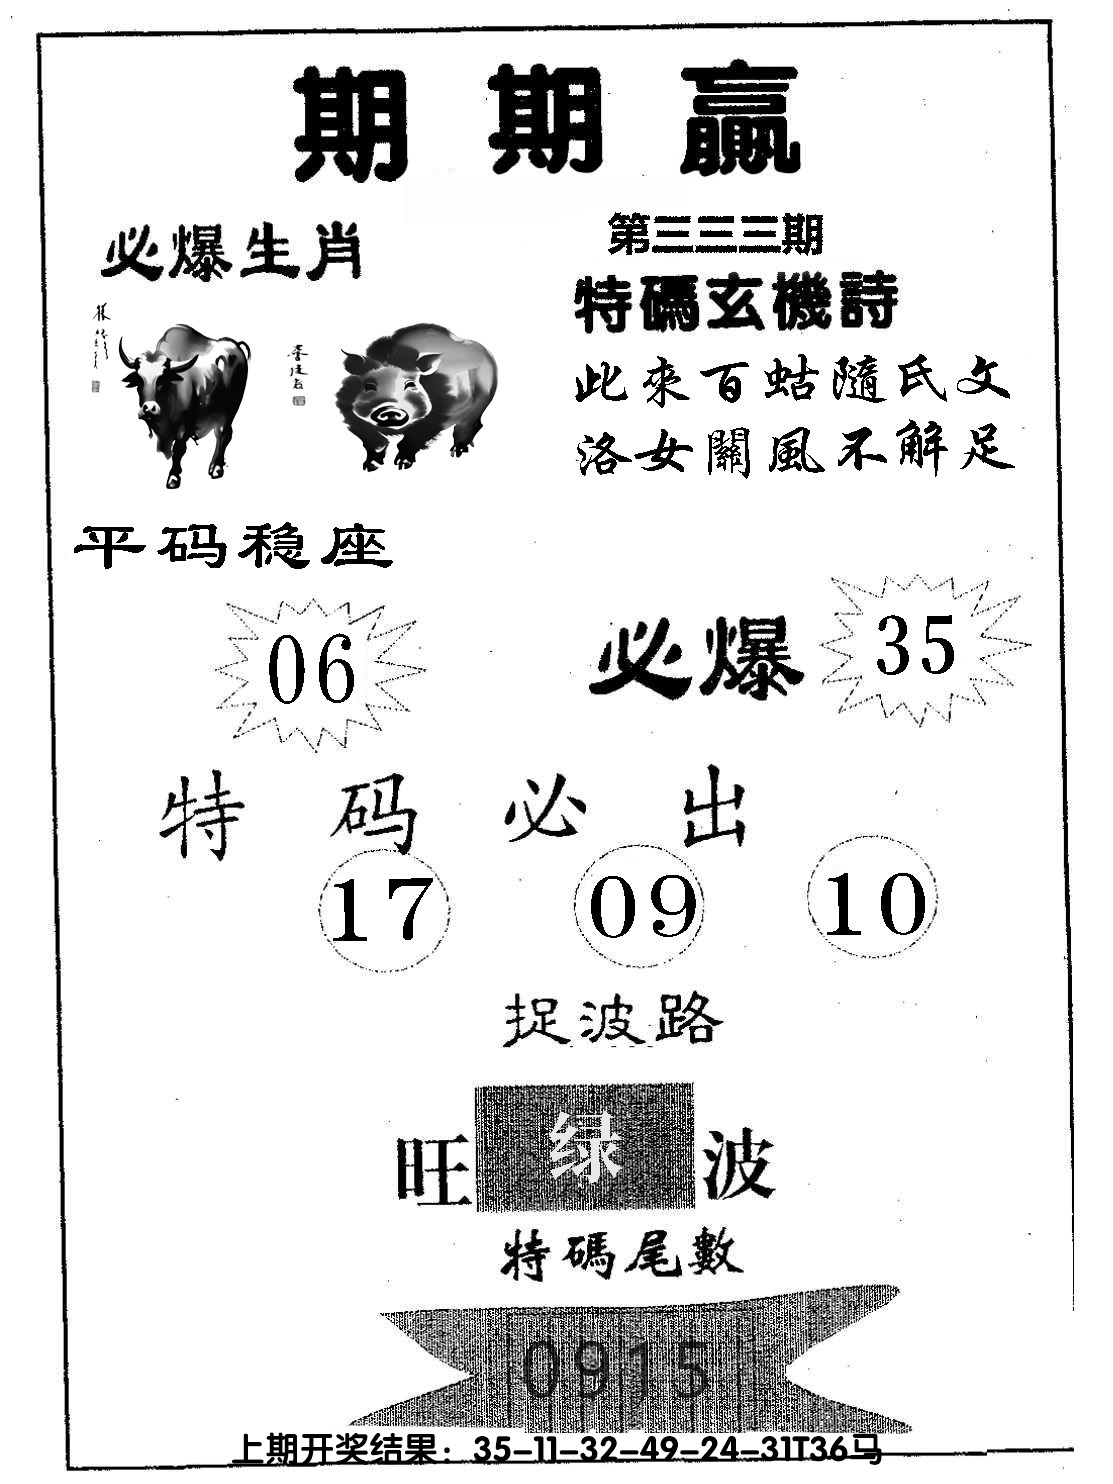 期期赢
必爆生肖
第三三三期
特碼玄機詩
此來百蛄隨氏文
洛女關風不解足
平码稳座
06
必爆 35
特码必出
17 09 10
捉波路
旺 绿 波
特碼尾數
0915
上期开奖结果：35-11-32-49-24-31T36马